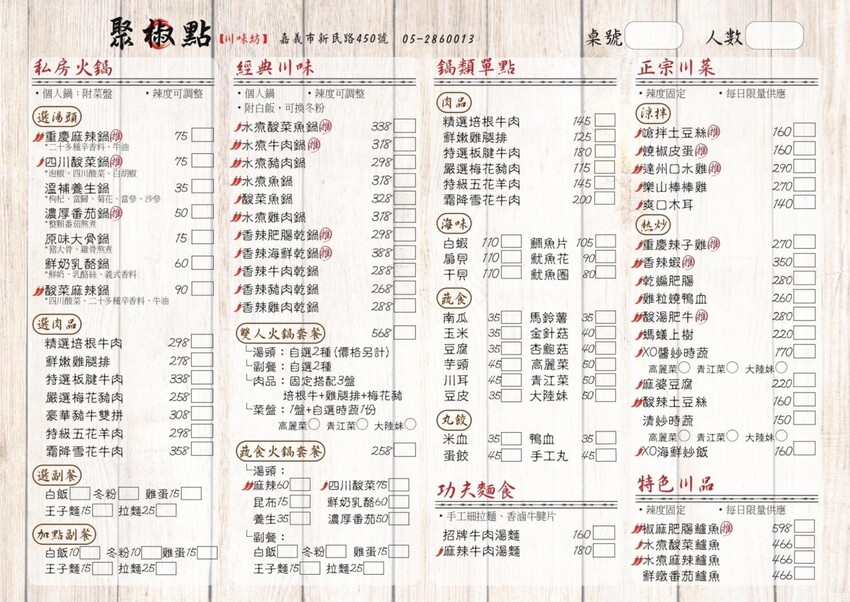 聚椒點【川味坊】 嘉義市新民路450號 05-2860013 桌號 人數
私房火鍋
・個人鍋：附菜盤 ・辣度可調整
選湯頭
重慶麻辣鍋 推 75
*二十多種辛香料、牛油
四川酸菜鍋 推 75
*泡椒、四川酸菜、白胡椒
溫補養生鍋 35
*枸杞、當歸、菊花、當參、沙參
濃厚番茄鍋 推 50
*整顆番茄熬煮
原味大骨鍋 15
*豬大骨、雞骨熬煮
鮮奶乳酪鍋 60
*鮮奶、乳酪絲、義式香料
酸菜麻辣鍋 90
*四川酸菜、二十多種辛香料、牛油
選肉品
精選培根牛肉 298
鮮嫩雞腿排 278
特選板腱牛肉 338
嚴選梅花豬肉 258
豪華豬牛雙拼 308
特級五花羊肉 298
霜降雪花牛肉 358
選副餐
白飯 冬粉 雞蛋15
王子麵15 拉麵25
加點副餐
白飯10 冬粉10 雞蛋15
王子麵15 拉麵25
經典川味
・個人鍋 ・辣度可調整
・附白飯，可換冬粉
水煮酸菜魚鍋 推 338
水煮牛肉鍋 推 318
水煮豬肉鍋 298
水煮魚鍋 318
酸菜魚鍋 328
水煮雞肉鍋 318
香辣肥腸乾鍋 推 298
香辣海鮮乾鍋 推 388
香辣牛肉乾鍋 288
香辣豬肉乾鍋 268
香辣雞肉乾鍋 288
雙人火鍋套餐 568
湯頭：自選2種(價格另計)
副餐：自選2種
肉品：固定搭配3盤
培根牛+雞腿排+梅花豬
菜盤：1盤+自選時蔬1份
高麗菜 青江菜 大陸妹
蔬食火鍋套餐 258
湯頭：
麻辣60 四川酸菜75
昆布15 鮮奶乳酪60
養生35 濃厚番茄50
副餐：
白飯 冬粉 雞蛋15
王子麵15 拉麵25
鍋類單點
肉品
精選培根牛肉 145
鮮嫩雞腿排 125
特選板腱牛肉 180
嚴選梅花豬肉 115
特級五花羊肉 145
霜降雪花牛肉 200
海味
白蝦 110 鯛魚片 105
扇貝 110 魷魚花 90
干貝 110 魷魚圈 80
蔬食
南瓜 35 馬鈴薯 35
玉米 35 金針菇 40
豆腐 35 杏鮑菇 40
芋頭 45 高麗菜 50
川耳 45 青江菜 50
豆皮 35 大陸妹 50
丸餃
米血 35 鴨血 35
蛋餃 45 手工丸 45
功夫麵食
・手工細拉麵、香滷牛腱片
招牌牛肉湯麵 160
麻辣牛肉湯麵 180
正宗川菜
・辣度固定 ・每日限量供應
涼拌
嗆拌土豆絲 推 160
燒椒皮蛋 推 160
達州口水雞 推 290
樂山棒棒雞 270
爽口木耳 140
熱炒
重慶辣子雞 推 270
香辣蝦 推 350
乾煸肥腸 280
雞粒燒鴨血 260
酸湯肥牛 推 280
螞蟻上樹 220
XO醬炒時蔬 170
高麗菜 青江菜 大陸妹
麻婆豆腐 220
酸辣土豆絲 160
清炒時蔬 150
高麗菜 青江菜 大陸妹
XO海鮮炒飯 160
特色川品
・辣度固定 ・每日限量供應
椒麻肥腸鱸魚 推 598
水煮酸菜鱸魚 466
水煮麻辣鱸魚 466
鮮燉番茄鱸魚 466